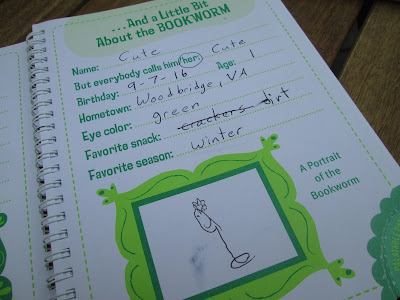 ...And a Little Bit
About the BOOKWORM
Name: Cute
But everybody calls him/her: Cute
Birthday: 9-7-16 Age: 1
Hometown: Woodbridge, VA
Eye color: green
Favorite snack: crackers dirt
Favorite season: winter
A Portrait
of the
Bookworm